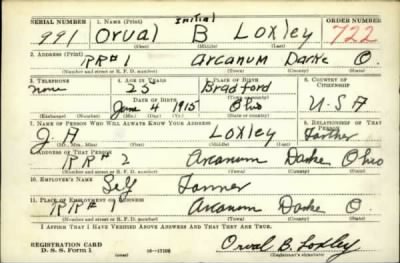 SERIAL NUMBER 1. NAME (Print) Initial ORDER NUMBER
991 Orval B Loxley 722
(First) (Middle) (Last)
2. ADDRESS (Print)
RR#1 Arcanum Darke O.
(Number and street or R. F. D. number) (Town) (County) (State)
3. TELEPHONE 4. AGE IN YEARS 5. PLACE OF BIRTH 6. COUNTRY OF CITIZENSHIP
none 25 Bradford
DATE OF BIRTH (Town or county)
June 4 1915 Ohio U.S.A
(Exchange) (Number) (Mo.) (Day) (Yr.) (State or country)
7. NAME OF PERSON WHO WILL ALWAYS KNOW YOUR ADDRESS 8. RELATIONSHIP OF THAT PERSON
J. A Loxley Farther
(Mr., Mrs., Miss) (First) (Middle) (Last)
9. ADDRESS OF THAT PERSON
RR# 2 Arcanum Darke Ohio
(Number and street or R. F. D. number) (Town) (County) (State)
10. EMPLOYER'S NAME
Self Farmer
11. PLACE OF EMPLOYMENT OR BUSINESS
RR# 1 Arcanum Darke O
(Number and street or R. F. D. number) (Town) (County) (State)
I AFFIRM THAT I HAVE VERIFIED ABOVE ANSWERS AND THAT THEY ARE TRUE.
REGISTRATION CARD
D. S. S. Form 1 16—17105 Orval B. Loxley
(Registrant's signature)